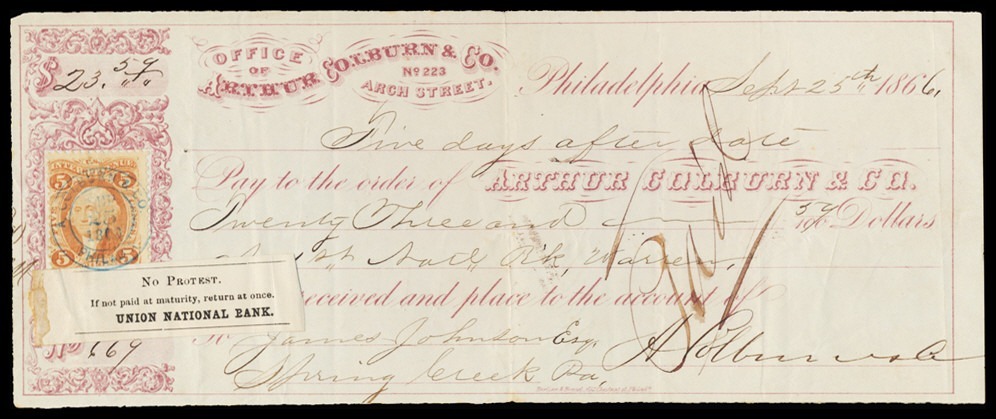 $23.59
OFFICE
OF
ARTHUR COLBURN & CO.
No 223
ARCH STREET.
Philadelphia, Sept 25th 1866,
Five days after date
Pay to the order of ARTHUR COLBURN & CO.
Twenty Three and 59/100 Dollars
at 1st Natl B'k, Warren,
received and place to the account of
To James Johnson Esq. A Colburn & Co
Spring Creek Pa,
5 5
5 5
No PROTEST.
If not paid at maturity, return at once.
UNION NATIONAL BANK.
No 669
Paid